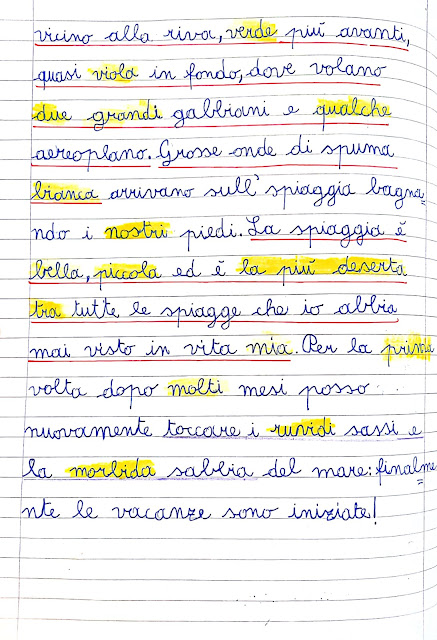 vicino alla riva, verde piú avanti,
quasi viola in fondo, dove volano
due grandi gabbiani e qualche
aereoplano. Grosse onde di spuma
bianca arrivano sull' spiaggia bagna=
ndo i nostri piedi. La spiaggia é
bella, piccola ed é la piú deserta
tra tutte le spiagge che io abbia
mai visto in vita mia. Per la prima
volta dopo molti mesi posso
nuovamente toccare i ruvidi sassi e
la morbida sabbia del mare: finalme=
nte le vacanze sono iniziate!